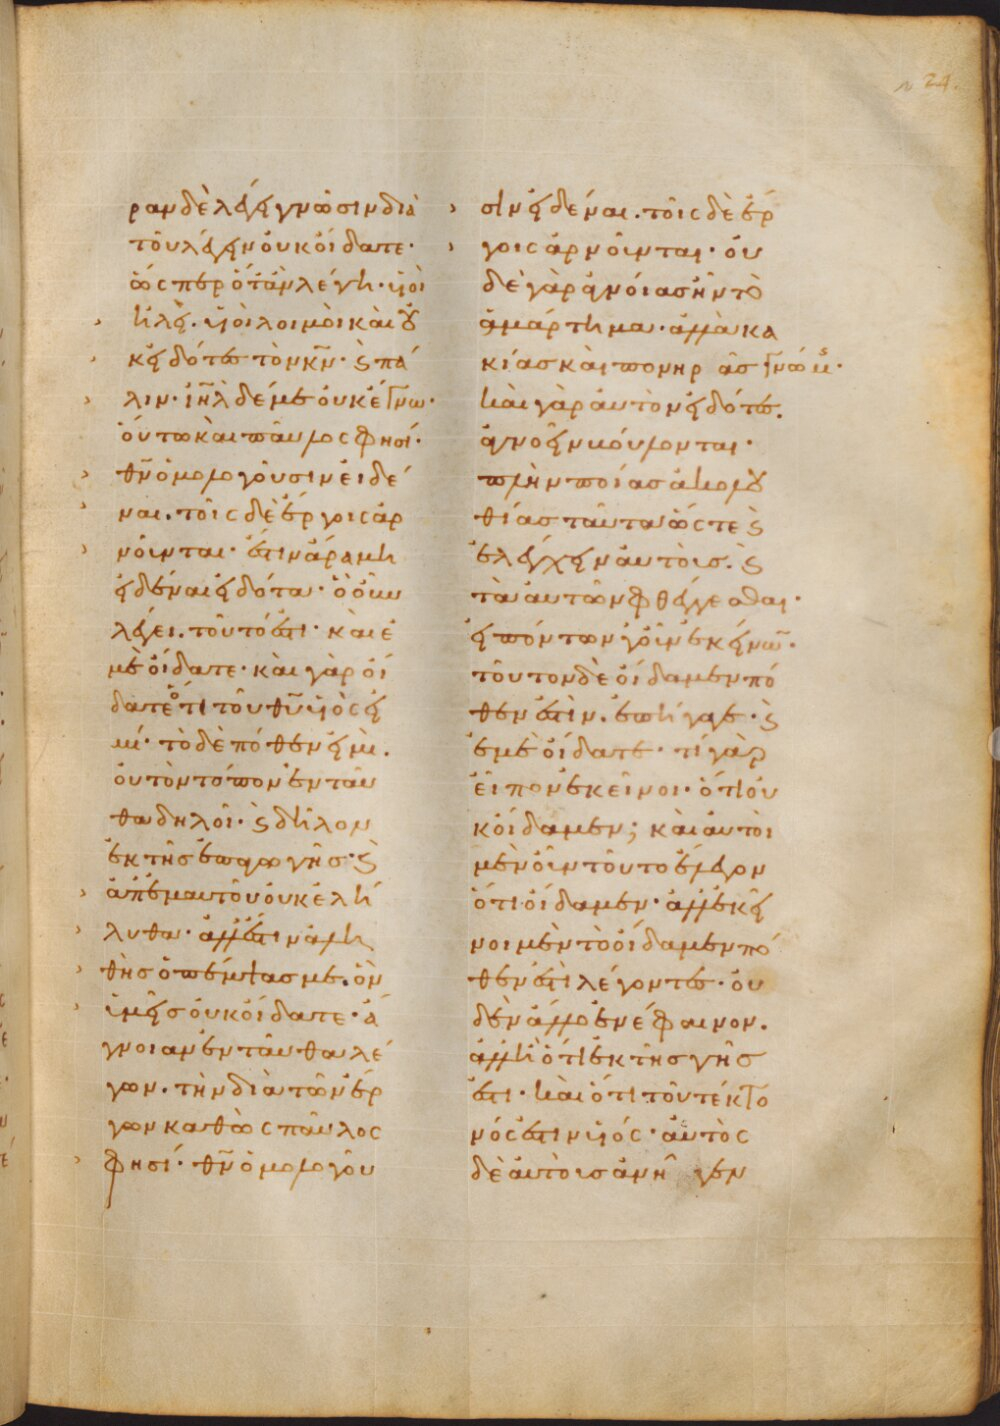 24.
ραν δὲ λέγει γνῶσιν διὰ
τοῦ λέγειν οὐκ οἴδατε·
ὥσπερ ὅταν λέγη· υἱοὶ
ἡλεί· υἱοὶ λοιμοὶ καὶ οὐ
κ εἰδότες τὸν κν̄· ϗ πά
λιν· ιη̄λ δέ με οὐκ ἔγνω·
οὕτω καὶ παῦλος φησί·
θν̄ ὁμολογοῦσιν εἰδέ
ναι. τοῖς δὲ ἔργοις ἀρ
νοῦνται· ἔστιν ἄρα μὴ
εἰδέναι εἰδότα· ὃ οὖν
λέγει. τοῦτό ἐστι· κἀμὲ
με οἴδατε· καὶ γὰρ οἴ
δατε ὅτι τοῦ θῡ υἱὸς εἰ
μί· τὸ δὲ πόθεν εἰμὶ.
οὐ τὸν τόπον ἐνταῦ
θα δηλοῖ· ϗ δῆλον
ἐκ τῆς ἐπαγωγῆς· ϗ
ἀπ' ἐμαυτοῦ οὐκ ἐλή
λυθα· ἀλλ' ἔστιν ἀλη
θὴς ὁ πέμψας με. ὃν
ὑμεῖς οὐκ οἴδατε· ἄ
γνοιαν ἐνταῦθα λέ
γων. τὴν διὰ τῶν ἔρ
γων καθὼς παῦλος
φησί· θν̄ ὁμολογοῦ
σιν εἰδέναι. τοῖς δὲ ἔρ
γοις ἀρνοῦνται· οὐ
δὲ γὰρ ἀγνοίας ἦν τὸ
ἁμάρτημα· ἀλλὰ κα
κίας καὶ πονηρ ᾶς γνώμης·
καὶ γὰρ αὐτὸν εἰδότες.
ἀγνοεῖν βούλονται·
πλὴν ποίας ἀκολου
θίας ταῦτα ὥς τε ϗ
ἐλέγχειν αὐτοὺς. ϗ
τὰ αὐτῶν φθέγγεσθαι·
εἰπόντων γοῦν ἐκείνων·
τοῦτον δὲ οἴδαμεν πό
θεν ἐστὶν. ἐπήγαγε· ϗ
ἐμὲ οἴδατε· τί γὰρ
εἶπον ἐκεῖνοι· ὅτι οὐ
κ οἴδαμεν; καὶ αὐτοὶ
μὲν οὖν τοῦτο ἔλεγον
ὅτι οἴδαμεν· ἀλλ' ἐκεῖ
νοι μὲν τὸ οἴδαμεν πό
θεν ἐστὶ λέγοντες· οὐ
δὲν ἄλλο ἐνέφαινον.
ἀλλ' ἢ ὅτι ἐκ τῆς γῆς
ἐστι· καὶ ὅτι τοῦ τέκτο
νός ἐστιν υἱός· αὐτὸς
δὲ αὐτοὺς ἀνῆ γεν